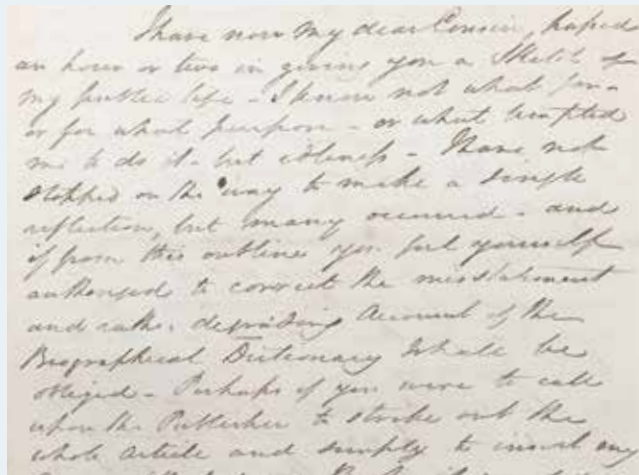 I have now my dear Cousin, passed
an hour or two in giving you a Sketch of
my public life - I know not what for -
or for what purpose - or what tempted
me to do it - but idleness - I have not
stopped on the way to make a single
reflection, but many occurred - and
if from this outline you feel yourself
authorised to correct the misstatement
and rather degrading Account of the
Biographical Dictionary I shall be
obliged - Perhaps if you were to call
upon the Publisher to strike out the
whole article and simply to insert my